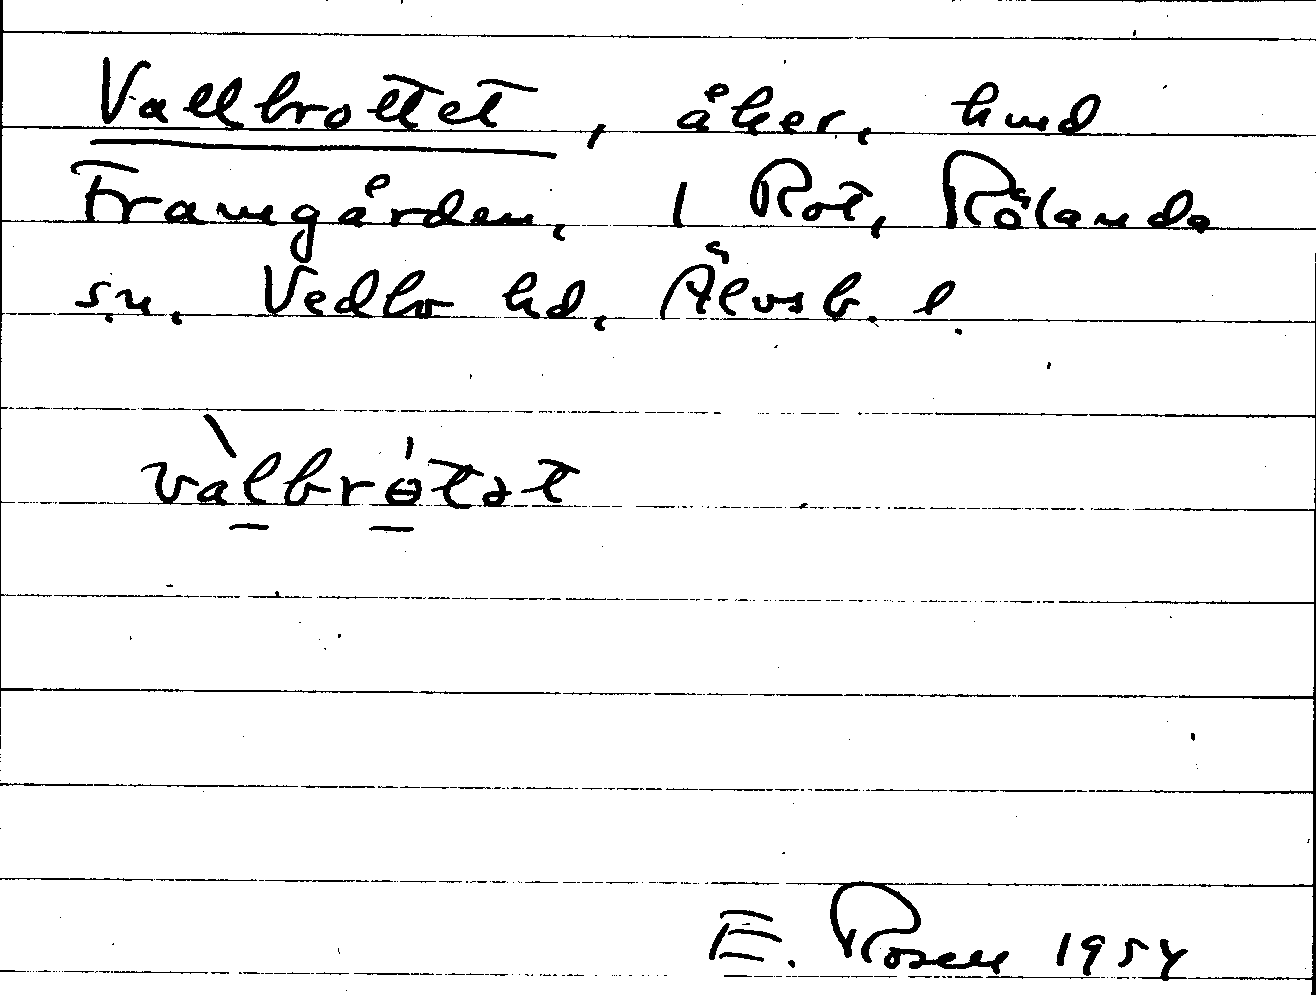 Vallbrottet, åker, hmd
Framgården, 1 Rot, Rölanda
sn. Vedbo hd, Älvsb. l.
vàlbrɵ́tət
E. Rosell 1954